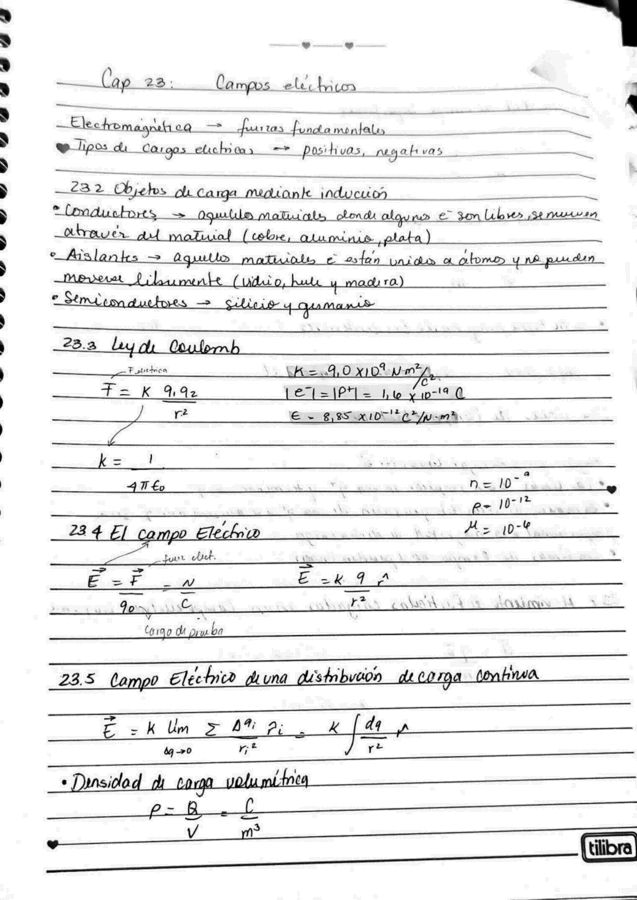 Cap 23: Campos eléctricos
Electromagnética → fuerzas fundamentales
Tipos de cargas electricas → positivas, negativas
23.2 Objetos de carga mediante inducción
• Conductores → aquellos materiales donde algunos e⁻ son libres, se mueven
através del material (cobre, aluminio, plata)
• Aislantes → aquellos materiales e⁻ están unidos a átomos y no pueden
moverse libremente (vidrio, hule y madera)
• Semiconductores → silicio y germanio
23.3 Ley de Coulomb
F eléctrica
F = K q₁q₂ / r²
K = 9,0 x10⁹ N·m²/C²
|e⁻| = |p⁺| = 1,6 x 10⁻¹⁹ C
ε = 8,85 x10⁻¹² C²/N·m²
k = 1 / 4πε₀
n = 10⁻⁹
p = 10⁻¹²
μ = 10⁻⁶
23.4 El campo Eléctrico
fuerz elect.
E⃗ = F⃗ / q₀ = N / C
E⃗ = k q / r² r̂
carga de prueba
23.5 Campo Eléctrico de una distribución de carga continua
E⃗ = k lím Δq→0 Σ Δqᵢ / rᵢ² r̂ᵢ = k ∫ dq / r² r̂
• Densidad de carga volumétrica
ρ = Q / V = C / m³
tilibra